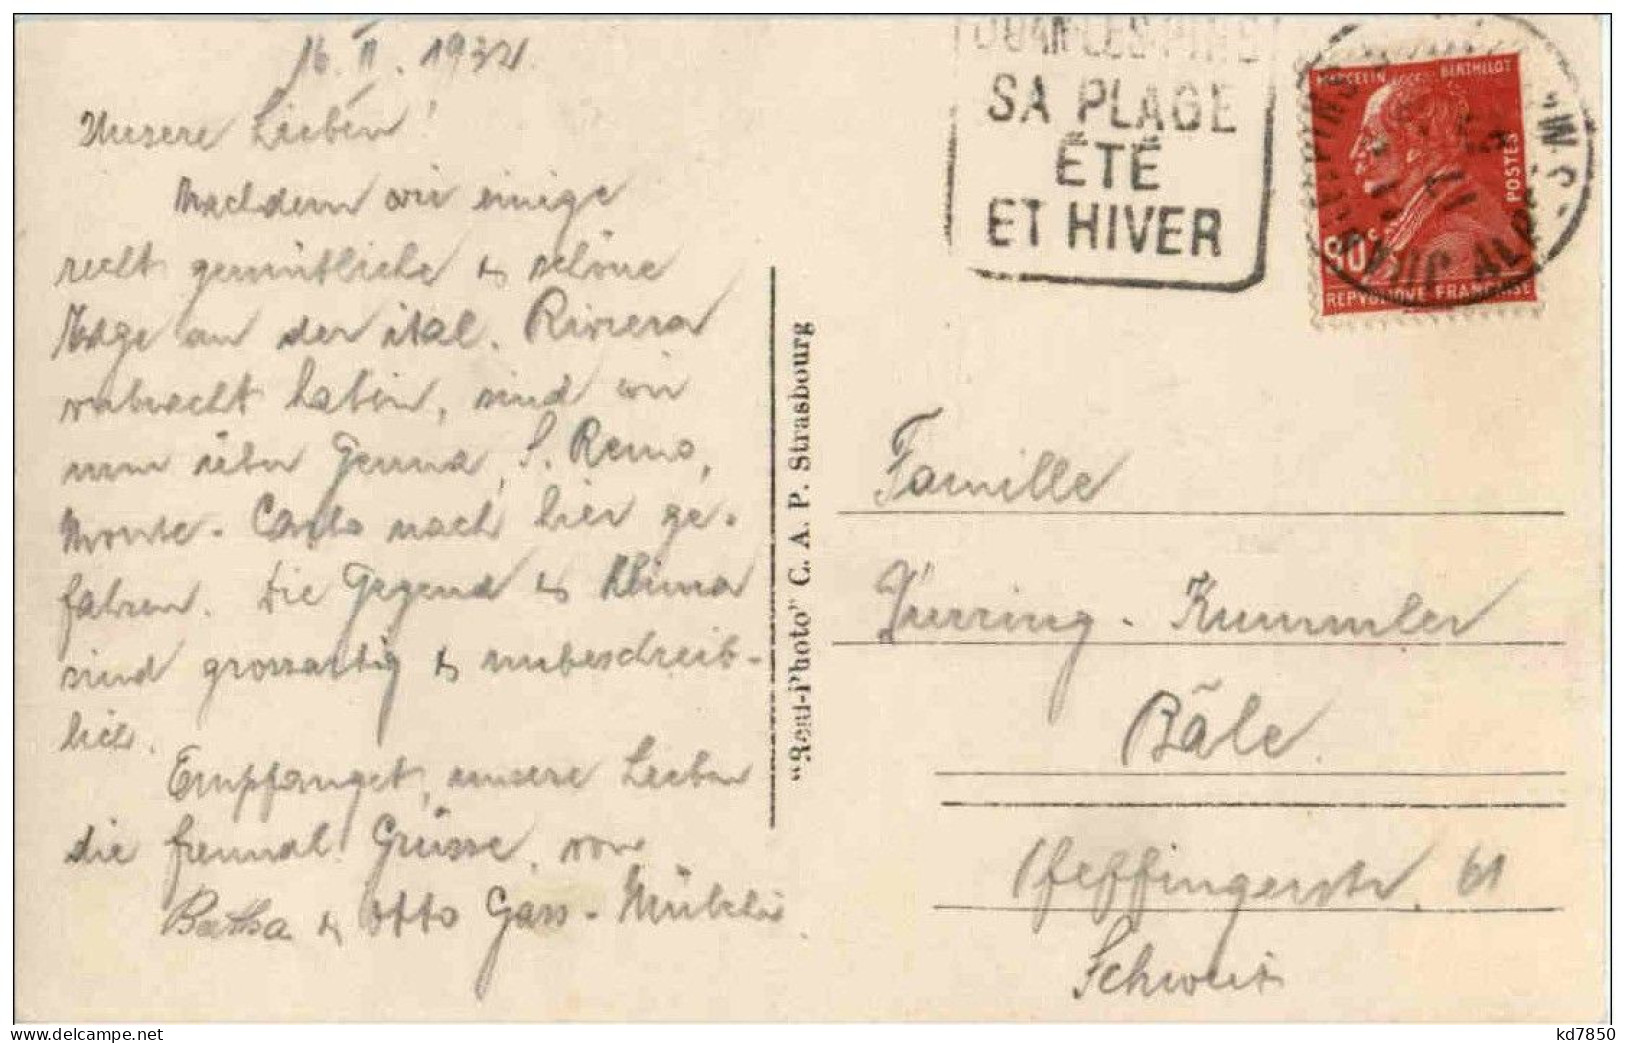 16. II. 1932.
Unsere Lieben!
Nachdem wir einige
recht gemütliche & schöne
Tage an der ital. Riviera
verbracht haben, sind wir
nun über Genua, S. Remo,
Monte-Carlo nach hier ge-
fahren. Die Gegend & Klima
sind grossartig & unbeschreib-
lich.
Empfanget, unsere Lieben
die freundl. Grüsse von
Bertha & Otto Gass-
"Real-Photo" C. A. P. Strasbourg
JUAN-LES-PINS
SA PLAGE
ÉTÉ
ET HIVER
MARCELIN BERTHELOT
POSTES
90c
REPVBLIQVE FRANÇAISE
Famille
Kummler
Bâle.
Pfeffingerstr. 61
Schweiz
kd7850